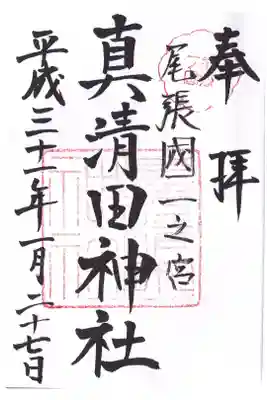 奉拝
尾張國一之宮
真清田神社
平成三十一年一月二十七日